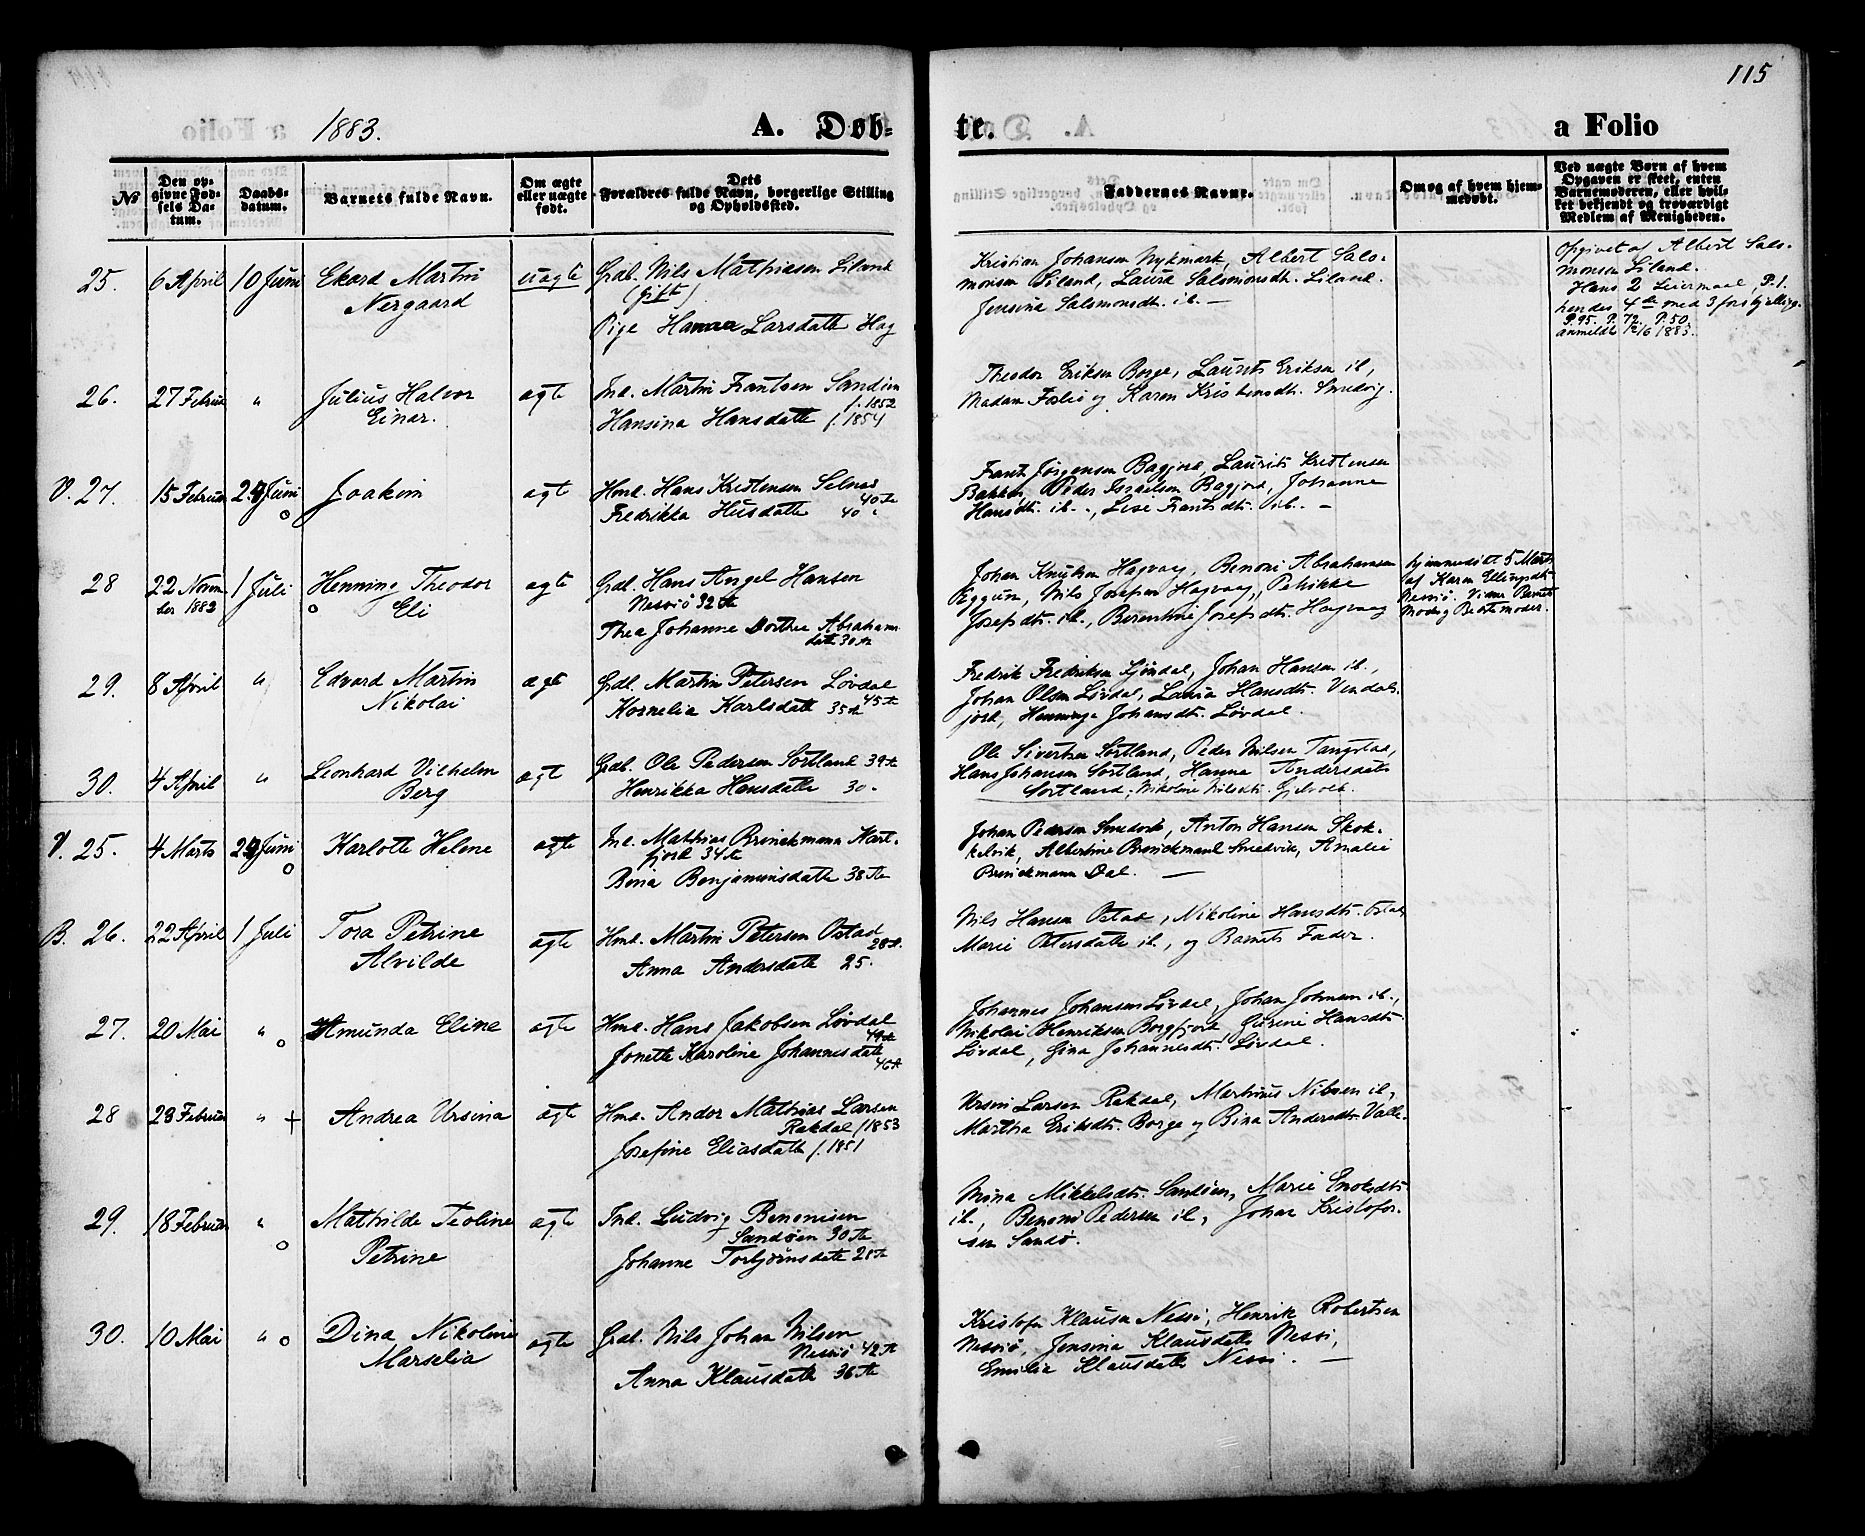 115
1883.
A. Døb-
te.
a Folio
№
Den op-
givne Fød-
sels Da-
tum.
Daabs-
datum.
Barnets fulde Navn.
Om ægte
eller uægte
født.
Dets
Forældres fulde Navn, borgerlige Stilling
og Opholdssted.
Faddernes Navne.
Om og af hvem hjem-
medøbt.
Ved uægte Børn af hvem
Opgaven er skeet, enten
Barnemoderen, eller hvil-
ket bekjendt og troværdigt
Medlem af Menigheden.
25. 6 April 10 Juni Ekard Martin
Nergaard
uægte
Grdb. Nils Mathiasen Liland
(Gift)
Pige Hanna Larsdatte Hag
Kristian Johansen Nykmark, Albert Sals-
monsen Liland, Laura Salsmonsdt. Liland.
Jensine Salsmonsdt. ib. —
Opgivet af Albert Sals-
monsen Liland.
Hans 2 Leiermaal, P.1.
hendes 4de med 3 forskjellige.
P.95. P.72. P.50.
anmeldt 12/6 1883.
26. 27 Februar " Julius Halvor
Einar.
ægte
Ind. Martin Frantsen Sandøen
f. 1852
Hansina Hansdatte f. 1854
Theodor Eriksen Borge, Laurits Eriksen ib,
Madam Falsø og Karen Kristensdt. Smedvig.
V. 27. 15 Februar 24 Juni Joakim
ægte
Hmd. Hans Kristensen Selnes
40 Aar
Fredrikka Husdatte 40 "
Frants Jørgensen Bagjord, Laurits Kristensen
Bakken, Peder Israelsen Bagjord, Johanne
Hansdt. ib. -, Lise Frantsdt. ib. —
28 22 Novem-
ber 1882
1 Juli Henning Theodor
Eli
ægte
Grdl. Hans Angel Hansen
Nessiø 32 A
Thea Johanne Dorthea Abrahams-
datte 30 A
Johan Knutsen Hagvaag, Benoni Abrahamsen
Eggum, Nils Josefsen Hagvaag, Petrikke
Josefsdt. ib., Berentine Josefsdt. Hagvaag
hjemmedøbt 5 Marts
af Karen Ellingsdt.
Nessiø. Vidner Barnets
Moder og Bestemoder.
29. 8 April " Edvard Martin
Nikolai
ægte
Grdl. Martin Petersen Løvdal
45 A
Kornelia Karlsdatte 35 A
Fredrik Fredriksen Ljøndal, Johan Hansen ib.,
Johan Olsen Løvdal, Laura Hansdt. Vendals-
jord, Henninge Johansdt. Løvdal.
30. 4 April " Leonhard Vilhelm
Berg
ægte
Grdb. Ole Pedersen Sortland 39 A
Henrikka Hansdatte 30 "
Ole Sivertsen Sortland, Peder Nilsen Tangstad,
Hans Johansen Sortland, Hanna Andersdatte
Sortland, Nikoline Nilsdt. Gjelvold.
V. 25. 4 Marts 24 Juni Karlotte Helene
ægte
Ind. Mathias Brinckmann Hart-
fjord 34 A
Bina Benjaminsdatte 38 A
Johan Pedersen Smedvik, Anton Hansen Skok-
kelvik, Albertine Brinckmann Smedvik, Amalie
Brinckmann Dal. —
B. 26. 22 April 1 Juli Tora Petrine
Alvilde
ægte
Hmd. Martin Petersen Ostad
28 A
Anna Andersdatte 25.
Nils Hansen Ostad, Nikoline Hansdt. Ostad
Marie Petersdatte ib, og Barnets Fader.
27. 20 Mai " Amunda Eline
ægte
Hmd. Hans Jakobsen Løvdal
49 A
Jonette Karoline Johannesdatte
46 A
Johannes Johansen Løvdal, Johan Johnsen ib.,
Nikolai Henriksen Borgfjord, Gurine Hansdt.
Løvdal, Gina Johannesdt. Løvdal.
28 23 Februar " Andrea Ursina
ægte
Hmd. Andor Mathias Larsen
Rakdal f 1853
Josefine Eliasdatte f. 1851
Ursin Larsen Rakdal, Martinus Nilsen ib,
Martha Eriksdt. Borge og Bina Andersdt. Valle.
29. 18 Februar " Mathilde Teoline
Petrine
ægte
Ind. Ludvig Benonisen
Sandøen 30 A
Johanne Torbjørnsdatte 28 A
Mina Mikkelsdt. Sandøen, Marie Enoksdt.
ib., Benoni Pedersen ib, Johan Kristofer-
sen Sandø.
30. 10 Mai " Dina Nikoline
Marselia
ægte
Grdb. Nils Johan Nilsen
Nessiø 42 A
Anna Klausdatte 36 A
Kristofer Klausen Nessi, Henrik Robertsen
Nessiø, Jensina Klausdatte Nessi,
Emilia Klausdatte Nessi. —